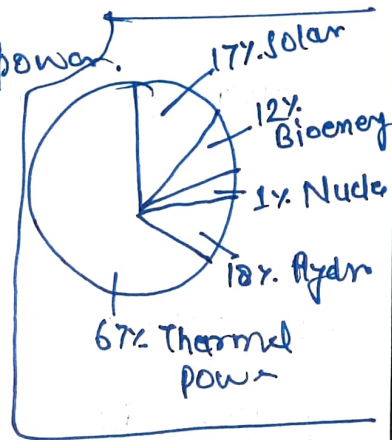 power.
17% Solar
12%
Bioeney
1% Nucle
18% Hydr
67% Thermal
power